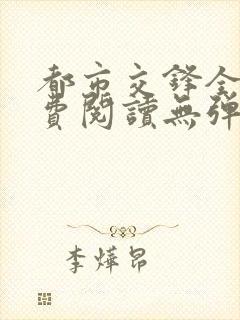 都市交鋒全
費閱讀無彈
李燁昂